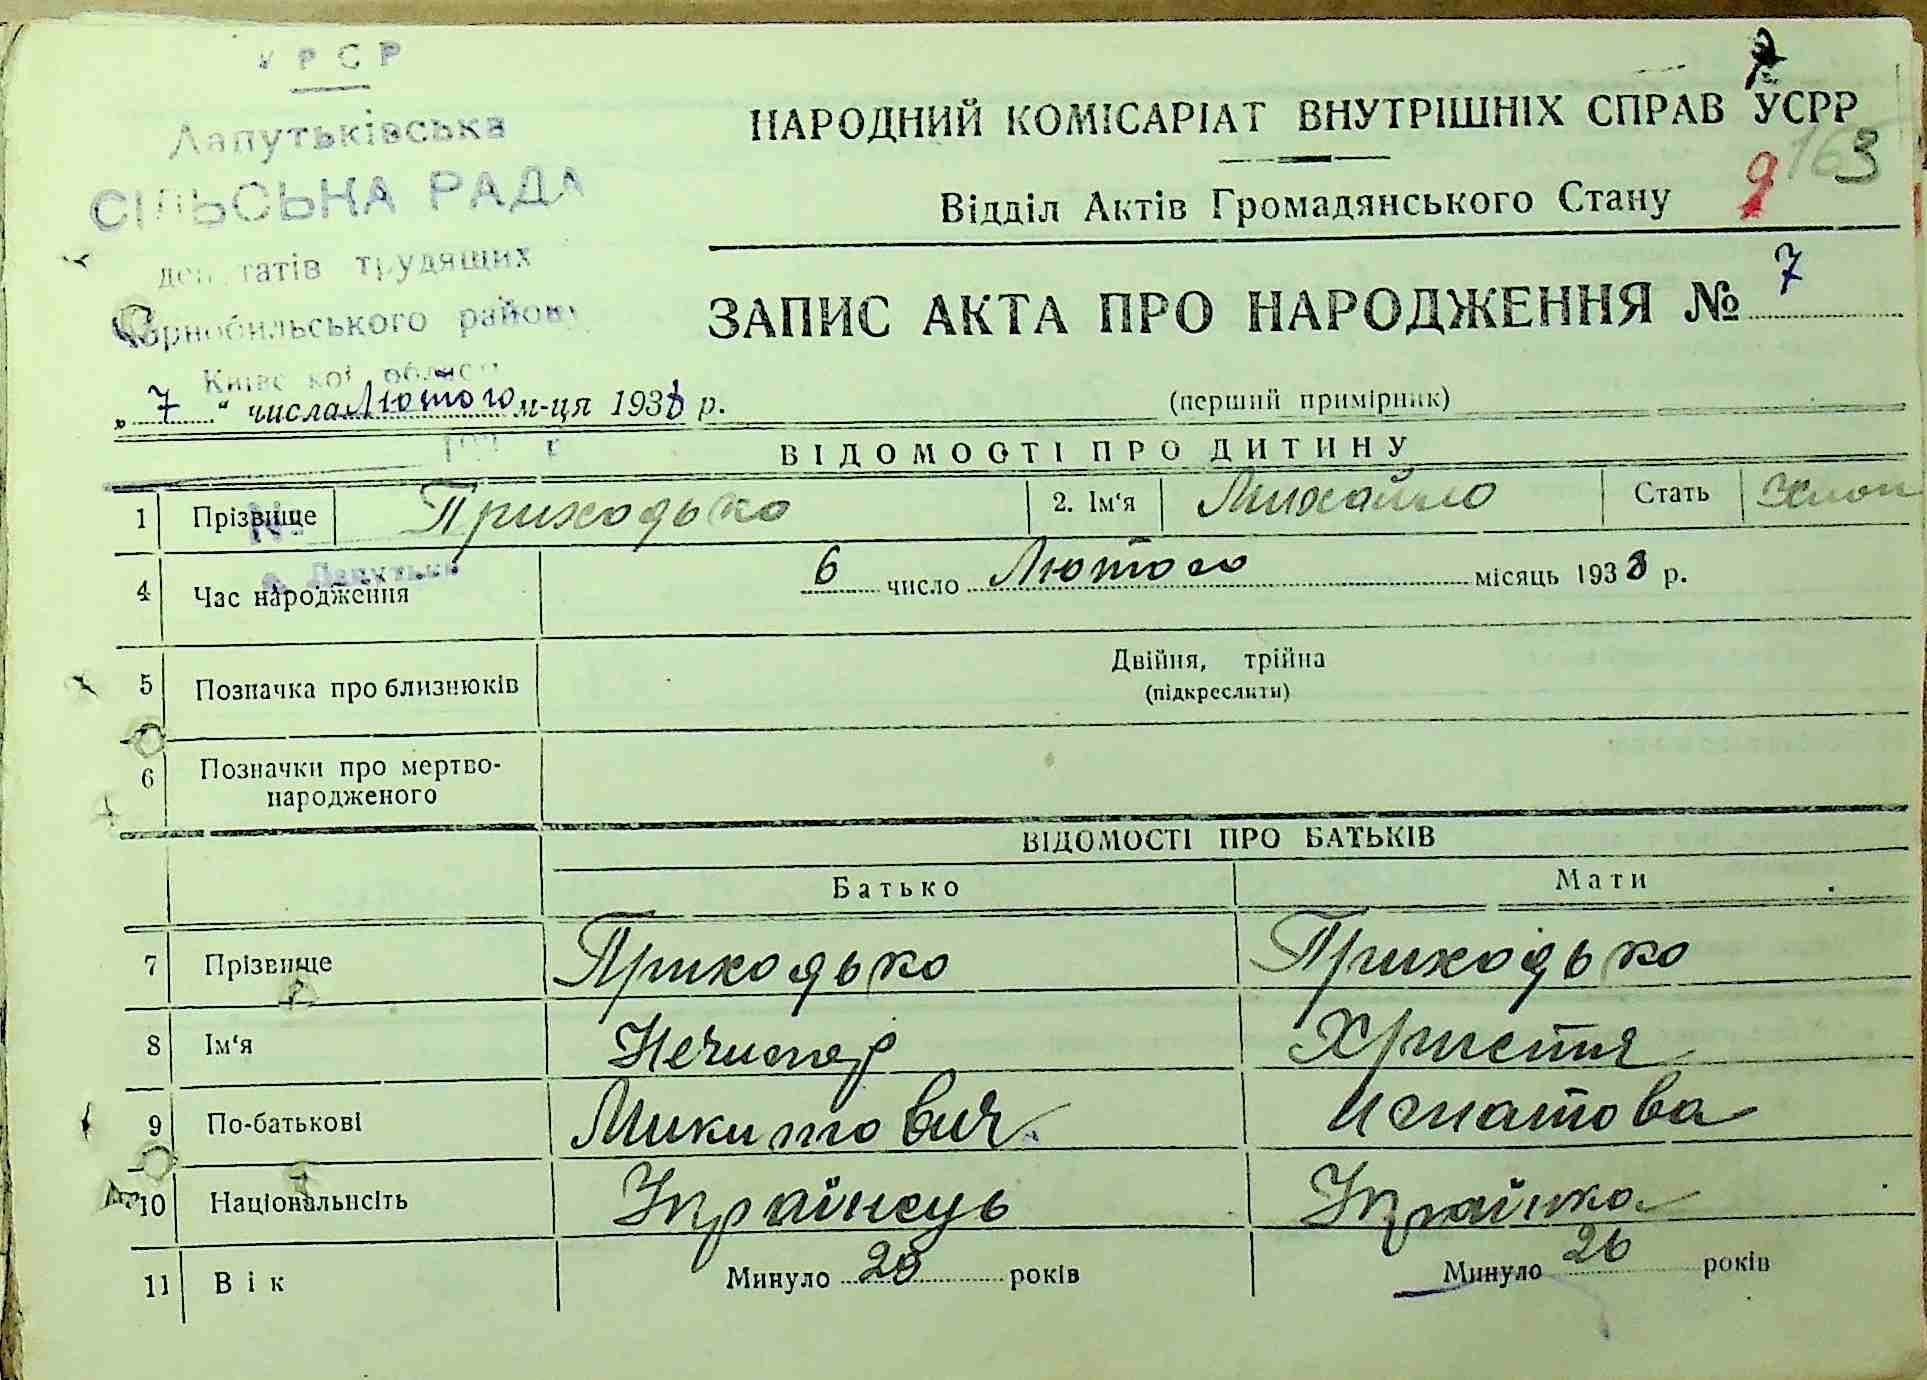 УРСР
Лапутьківська
СІЛЬСЬКА РАДА
депутатів трудящих
Чорнобильського району
Київської області
НАРОДНИЙ КОМІСАРІАТ ВНУТРІШНІХ СПРАВ УСРР
163
9
Відділ Актів Громадянського Стану
ЗАПИС АКТА ПРО НАРОДЖЕННЯ № 7
„ 7 “ числа Лютого м-ця 1938 р.
(перший примірник)
ВІДОМОСТІ ПРО ДИТИНУ
1 Прізвище Приходько 2. Ім'я Михайло Стать хлоп
№
с. Лапутьки
4 Час народження 6 число Лютого місяць 1938 р.
5 Позначка про близнюків Двійня, трійна
(підкреслити)
6 Позначки про мертво-
народженого
ВІДОМОСТІ ПРО БАТЬКІВ
Батько Мати
7 Прізвище Приходько Приходько
8 Ім'я Нечипор Христя
9 По-батькові Микитович Игнатова
10 Національнсіть Українець Українка
11 Вік Минуло 28 років Минуло 26 років